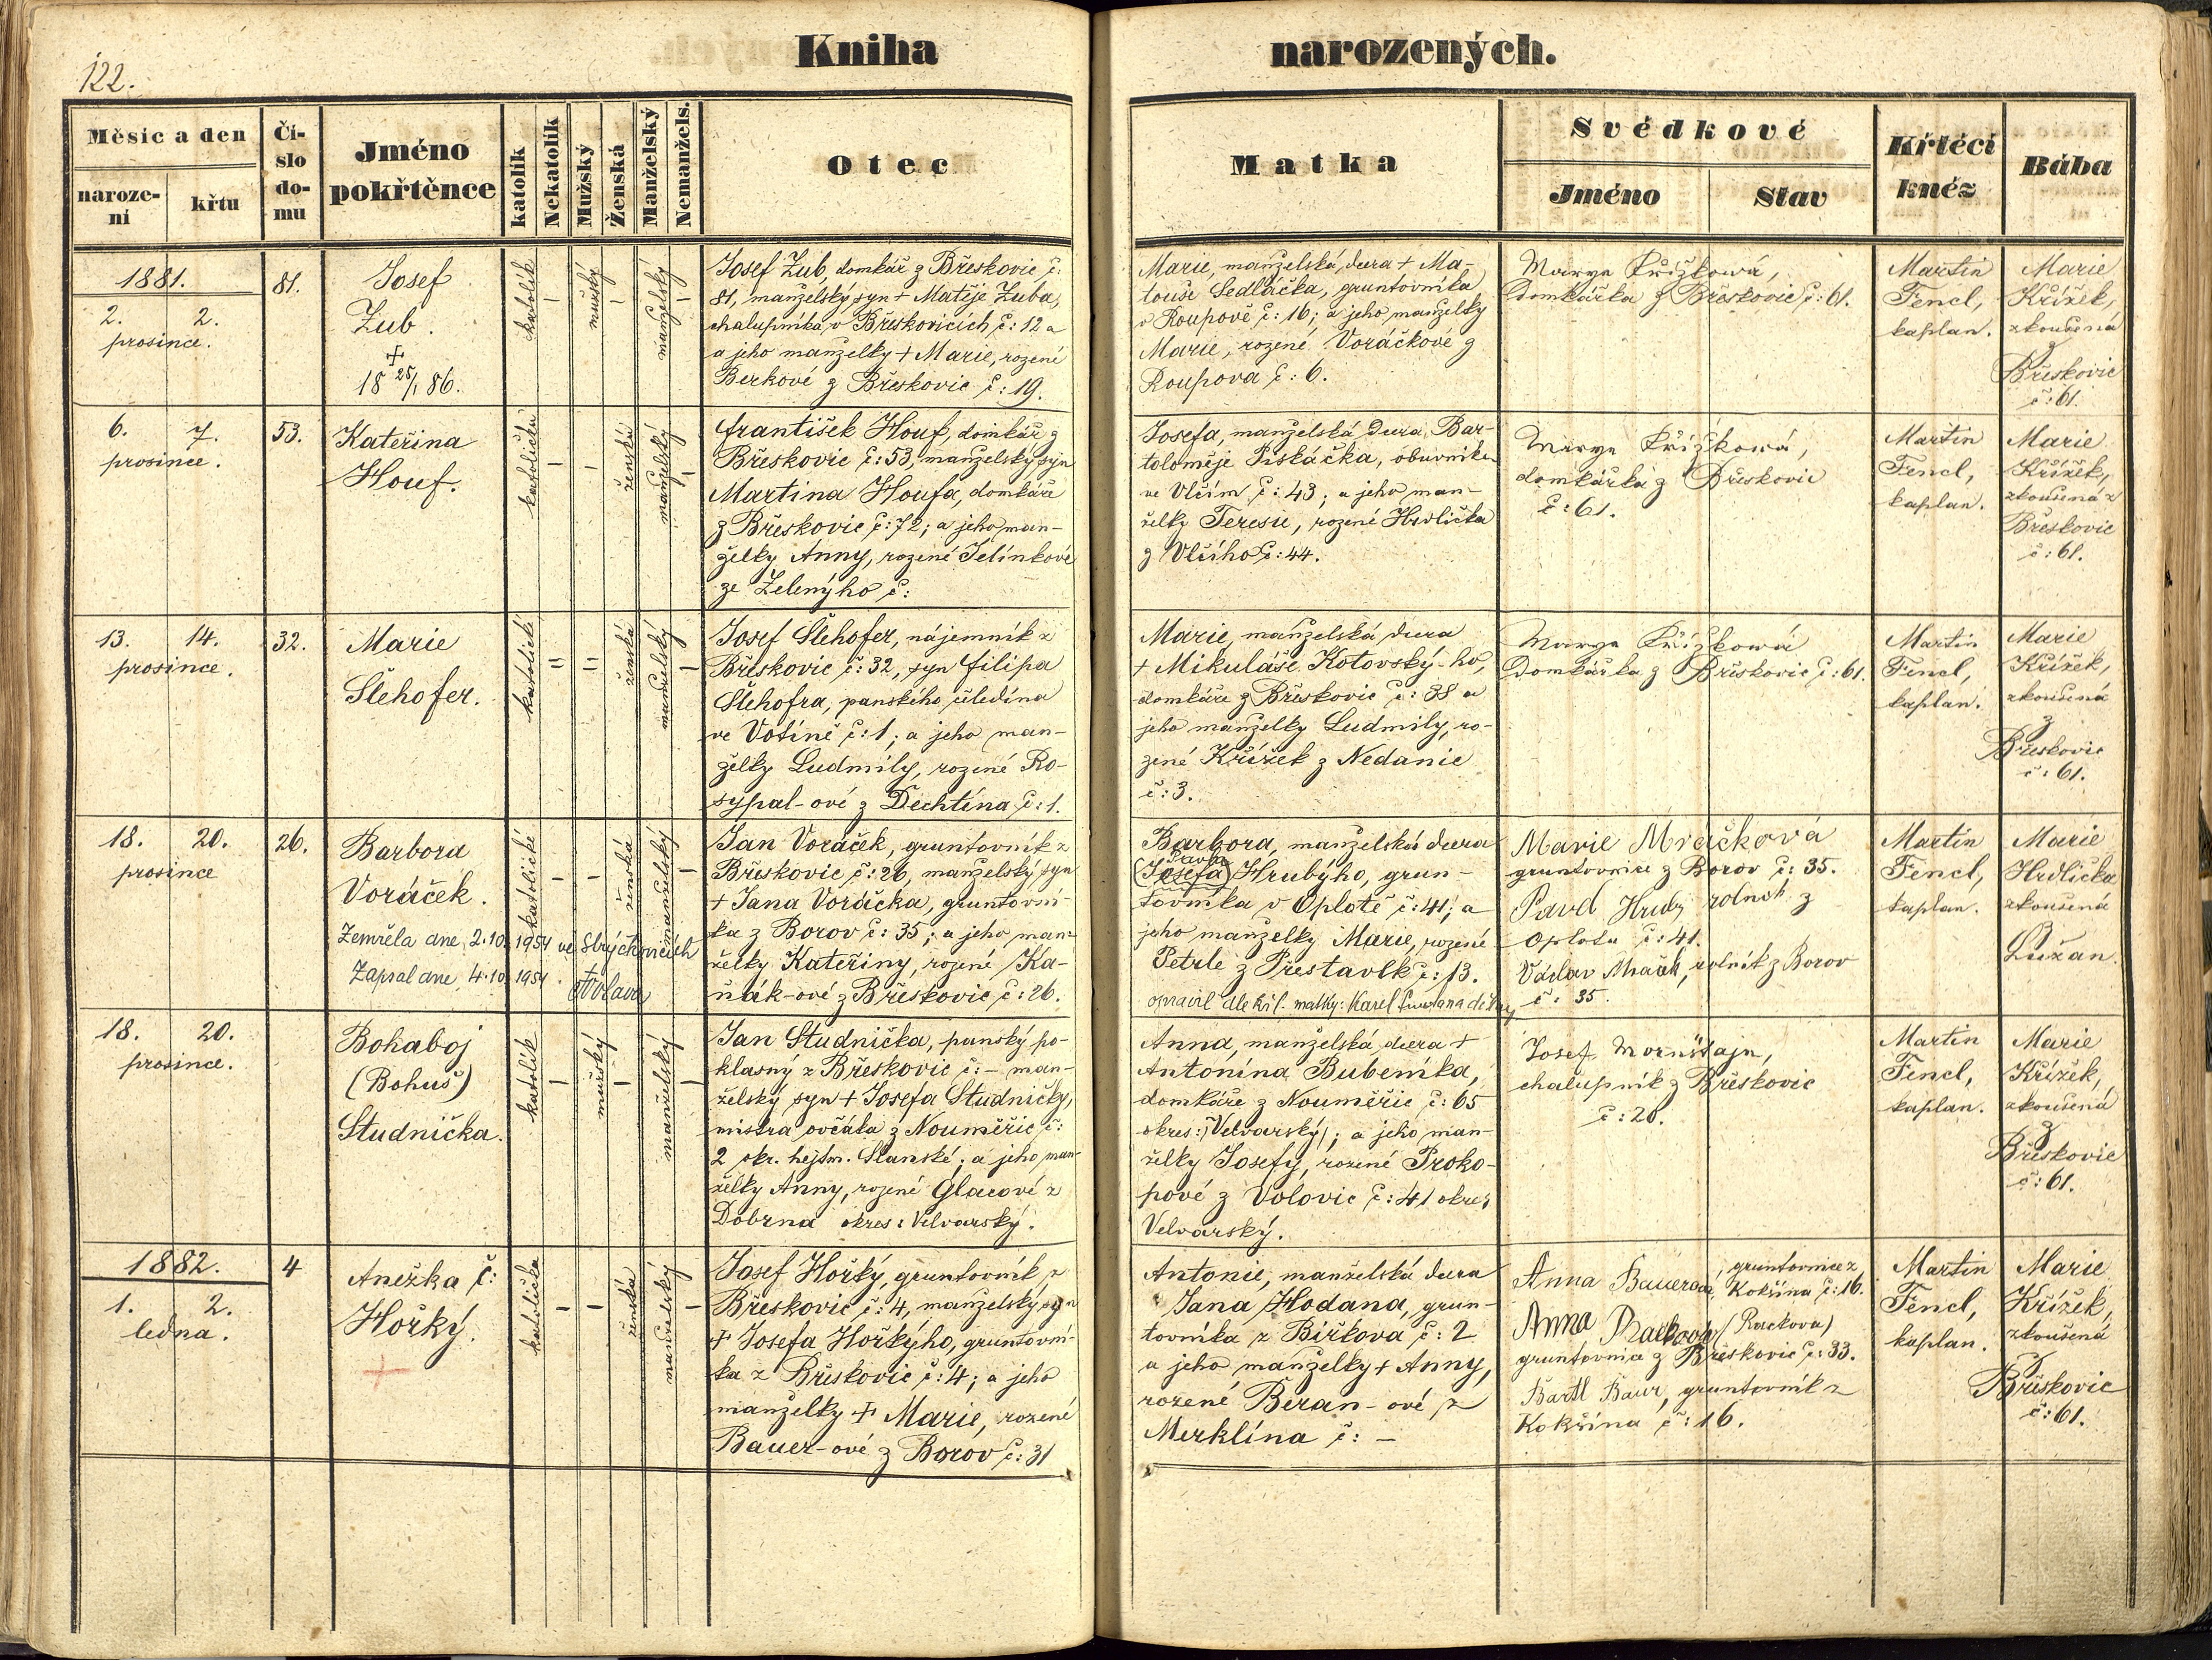 122.
Kniha narozených.
Měsíc a den
naroze-
ní
křtu
Čí-
slo
do-
mu
Jméno
pokřtěnce
katolík
Nekatolík
Mužský
Ženská
Manželský
Nemanžels.
Otec
Matka
Svědkové
Jméno
Stav
Křtěcí
kněz
Bába
1881.
2. 2.
prosince.
81.
Josef
Zub.
+
18 25/1 86.
katolík
–
mužský
–
manželský
–
Josef Zub, domkář z Břeskovic č:
81, manželský syn + Matěje Zuba,
chalupníka v Břeskovicích, č: 12 a
a jeho manželky + Marie, rozené
Berkové z Břeskovic č: 19.
Marie, manželská dcera + Ma-
touše Sedláčka, gruntovníka
v Roupově č: 16; a jeho manželky
Marie, rozené Voráčkové z
Roupova č: 6.
Marya Křížková,
Domkářka z Břeskovic č: 61.
Martin
Fencl,
kaplan.
Marie
Křížek,
zkoušená
z
Břeskovic
č: 61.
6. 7.
prosince.
53.
Kateřina
Houf.
katolička
–
–
ženská
manželský
–
František Houf, domkář z
Břeskovic č: 53, manželský syn
Martina Houfa, domkáře
z Břeskovic č: 72; a jeho man-
želky Anny, rozené Jelínkové
ze Zelenýho č:
Josefa, manželská dcera Bar-
toloměje Piskáčka, obuvníka
ve Vlčím č: 43; a jeho man-
želky Teresie, rozené Hrdlička
z Vlčího č: 44.
Marya Křížková,
domkářka z Břeskovic
č: 61.
Martin
Fencl,
kaplan.
Marie
Křížek,
zkoušená z
Břeskovic
č: 61.
13. 14.
prosince.
32.
Marie
Šlehofer.
katolické
=
=
ženská
manželský
–
Josef Šlehofer, nájemník z
Břeskovic č: 32, syn Filipa
Šlehofra, panského čeledína
ve Votíně č: 1; a jeho man-
želky Ludmily, rozené Ro-
sypal-ové z Dechtína č: 1.
Marie, manželská dcera
+ Mikuláše Kotovský-ho,
domkáře z Břeskovic č: 38 a
jeho manželky Ludmily, ro-
zené Křížek z Nedanic
č: 3.
Marya Křížková
Domkářka z Břeskovic č: 61.
Martin
Fencl,
kaplan.
Marie
Křížek,
zkoušená
z
Břeskovic
č: 61.
18. 20.
prosince
26.
Barbora
Voráček.
Zemřela dne 2.10. 1954 ve Strýčkovicích
Zapsal dne 4.10. 1954
katolické
–
–
ženská
manželský
–
Jan Voráček, gruntovník z
Břeskovic č: 26, manželský syn
+ Jana Voráčka, gruntovní-
ka z Borov č: 35; a jeho man-
želky Kateřiny, rozené Ka-
ňák-ové z Břeskovic č: 26.
Barbora, manželská dcera
Pavla
(Josefa) Hrubýho, grun-
tovníka v Oplotě č: 41; a
jeho manželky Marie, rozené
Petrle z Přestavlk č: 13.
opravil dle kř.l. matky: Karel
Marie Mračková
gruntovnice z Borov č: 35.
Pavel Hrubý rolník z
Oplota č: 41.
Václav Mraček, rolník z Borov
č: 35.
Martin
Fencl,
kaplan.
Marie
Hrdlička
zkoušená
Lužan.
18. 20.
prosince.
Bohaboj
(Bohuš)
Studnička.
katolík
–
mužský
–
manželský
–
Jan Studnička, panský po-
klasný z Břeskovic č: – man-
želský syn + Josefa Studničky,
mistra ovčáka z Nouměřic č:
2 okr. hejtm. Slanské; a jeho man-
želky Anny, rozené Glacové z
Dobrna okres: Velvarský.
Anna, manželská dcera +
Antonína Bubeníka,
domkáře z Nouměřic č: 65
okres: (Velvarský); a jeho man-
želky Josefy, rozené Proko-
pové z Volovic č: 41 okres
Velvarský.
Josef Mornštajn,
chalupník z Břeskovic
č: 20.
Martin
Fencl,
kaplan.
Marie
Křížek,
zkoušená
z
Břeskovic
č: 61.
1882.
1. 2.
ledna.
4
Anežka č:
Hořký.
+
katolička
–
–
ženská
manželský
–
Josef Hořký, gruntovník z
Břeskovic č: 4, manželský syn
+ Josefa Hořkýho, gruntovní-
ka z Břeskovic č: 4; a jeho
manželky + Marie, rozené
Bauer-ové z Borov č: 31
Antonie, manželská dcera
Jana Hodana, grun-
tovníka z Biřkova č: 2
a jeho manželky + Anny,
rozené Beran-ové z
Merklína č: –
Anna Bauerová, gruntovnice z
Kokšína č: 16.
Anna Rackova (Rackova)
gruntovnice z Břeskovic č: 33.
Bartl Baur, gruntovník z
Kokšína č: 16.
Martin
Fencl,
kaplan.
Marie
Křížek,
zkoušená
z
Břeskovic
č: 61.